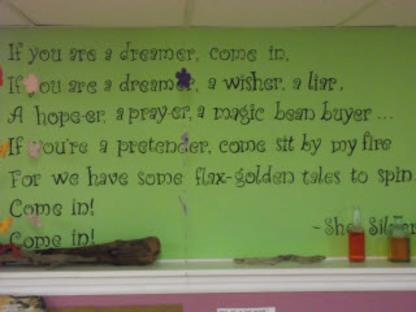 If you are a dreamer, come in,
If you are a dreamer, a wisher, a liar,
A hope-er, a pray-er, a magic bean buyer ...
If you're a pretender, come sit by my fire
For we have some flax-golden tales to spin.
Come in!
Come in!
~Shel Silver